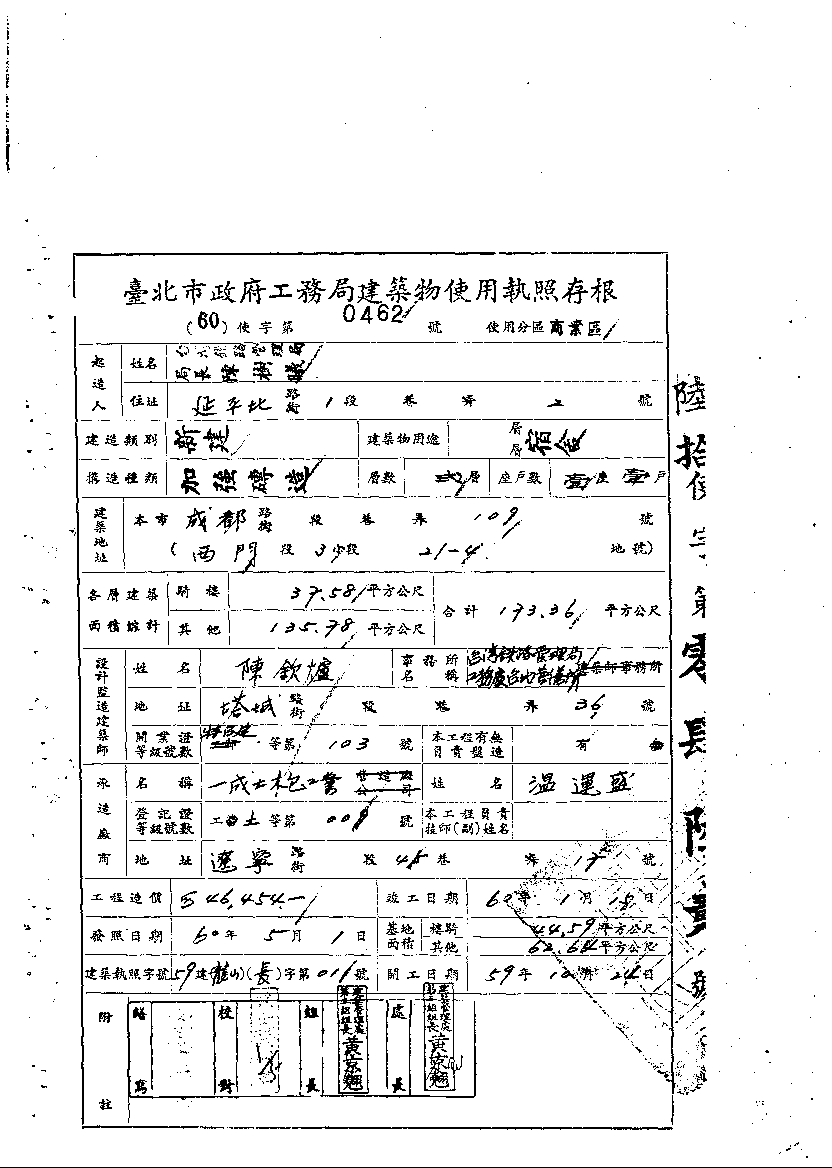 臺北市政府工務局建築物使用執照存根
(60)使字第 0462 號 使用分區商業區
起造人 姓名 局長陳樹曦
住址 延平北 路街 1段 巷 弄 2 號
建造類別 新建 建築物用途 層層 宿舍
構造種類 加強磚造 層數 貳層 座戶數 壹座壹戶
建築地址 本市成都路街 段 巷 弄 109 號
(西門段3小段 21-4 地號)
各層建築面積綜計 騎樓 37.58平方公尺 合計 173.36 平方公尺
其他 135.78平方公尺
設計監造建築師 姓名 陳欽爐 事務所名稱 台灣鐵路管理局 建築師事務所
地址 塔城 路街 段 巷 弄 36 號
開業證等級號數 等第 103 號 本工程有無負責監造 有
承造廠商 名稱 一成土木包工業 營造廠公司 姓名 溫運盛
登記證等級號數 工 土等第 009 號 本工程負責技師(副)姓名
地址 遼寧 路街 段 45巷 弄 17 號
工程造價 546,454.- 竣工日期 60年 1月 18日
發照日期 60年 5月 1日 基地面積 樓騎 44.59平方公尺
其他 62.64平方公尺
建築執照字號 59建(龍山)(長)字第011號 開工日期 59年 10月 24日
附註 繕寫 校對 組長 黃京翹 處長 黃京翹
陸拾使字第零肆陸貳號